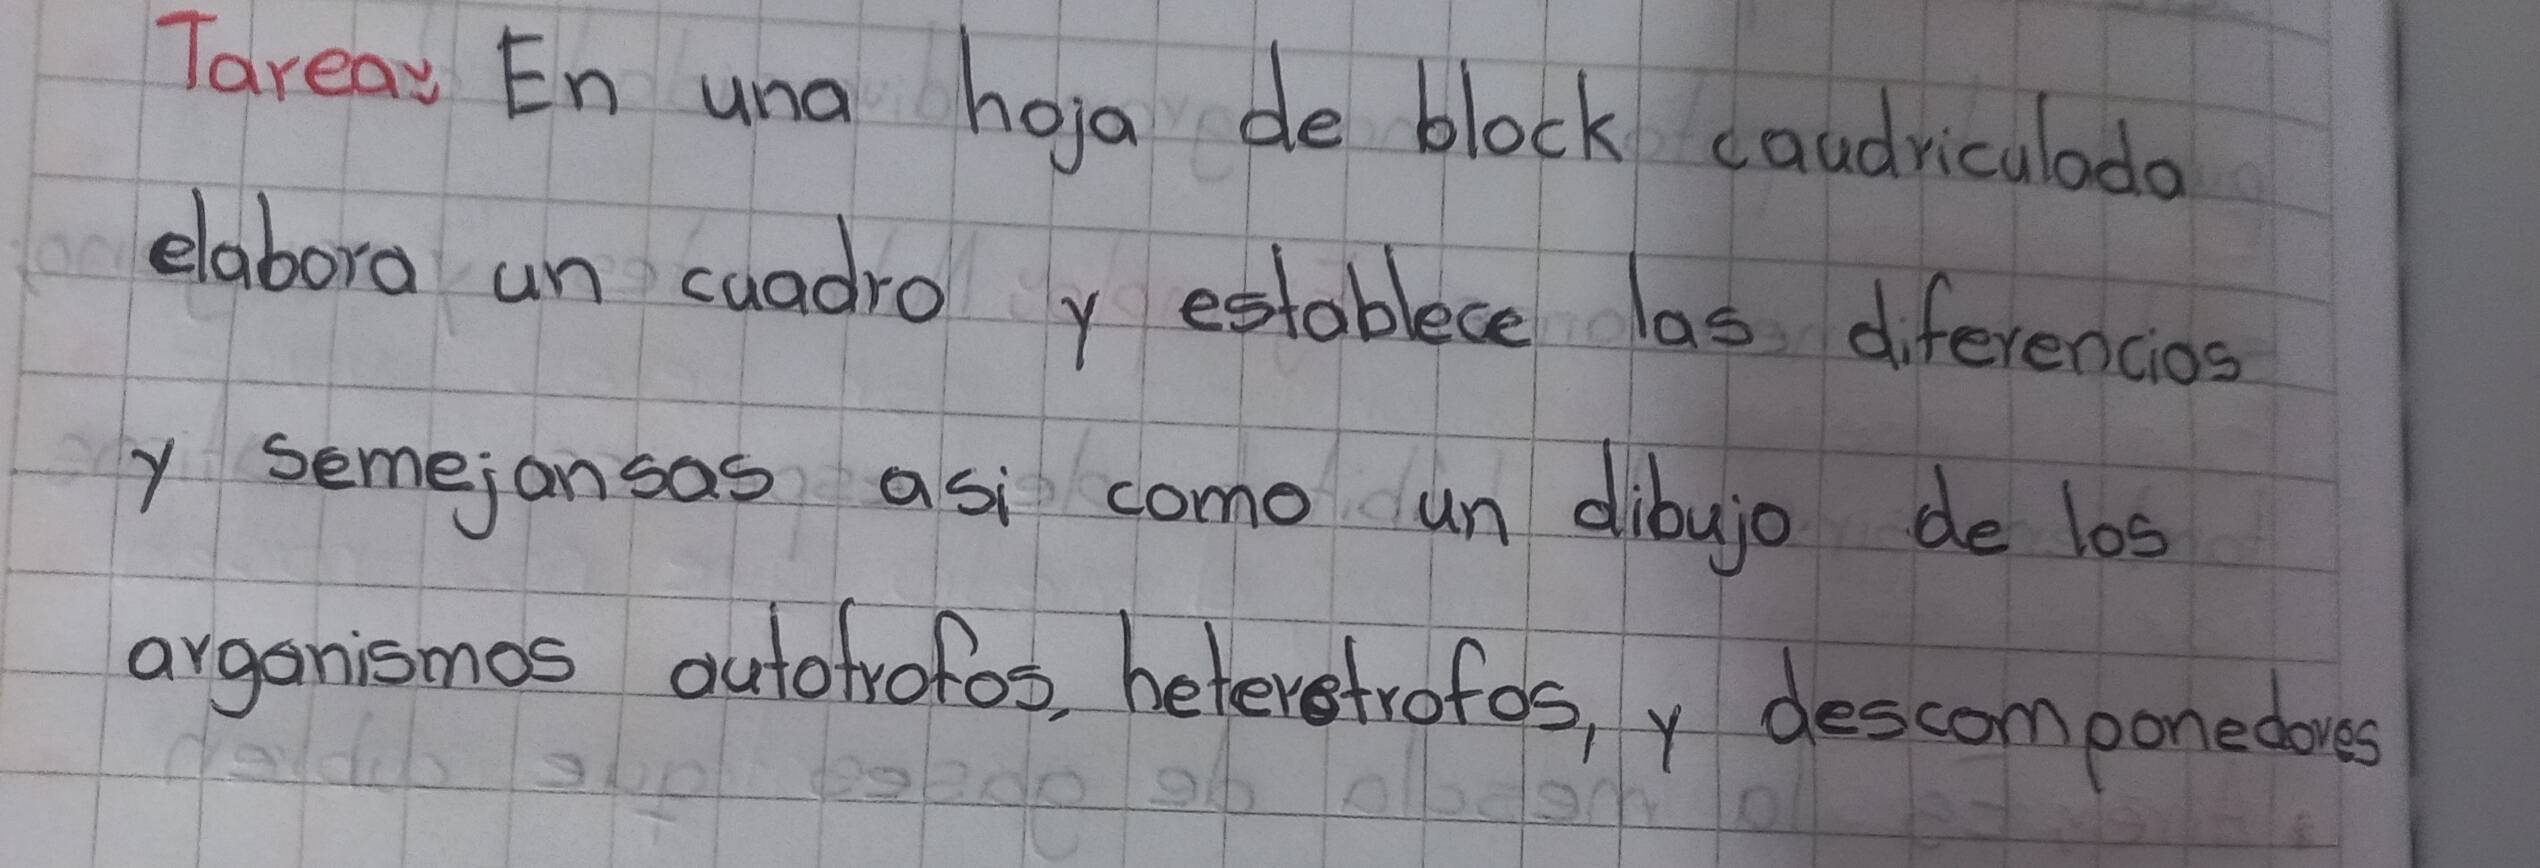 Tarea: En una hoja de block caudriculada
elabora un cuadro y establece las diferencias
y semejansas asi como un dibujo de los
arganismos autotrofos, heterotrofos, y descomponedores